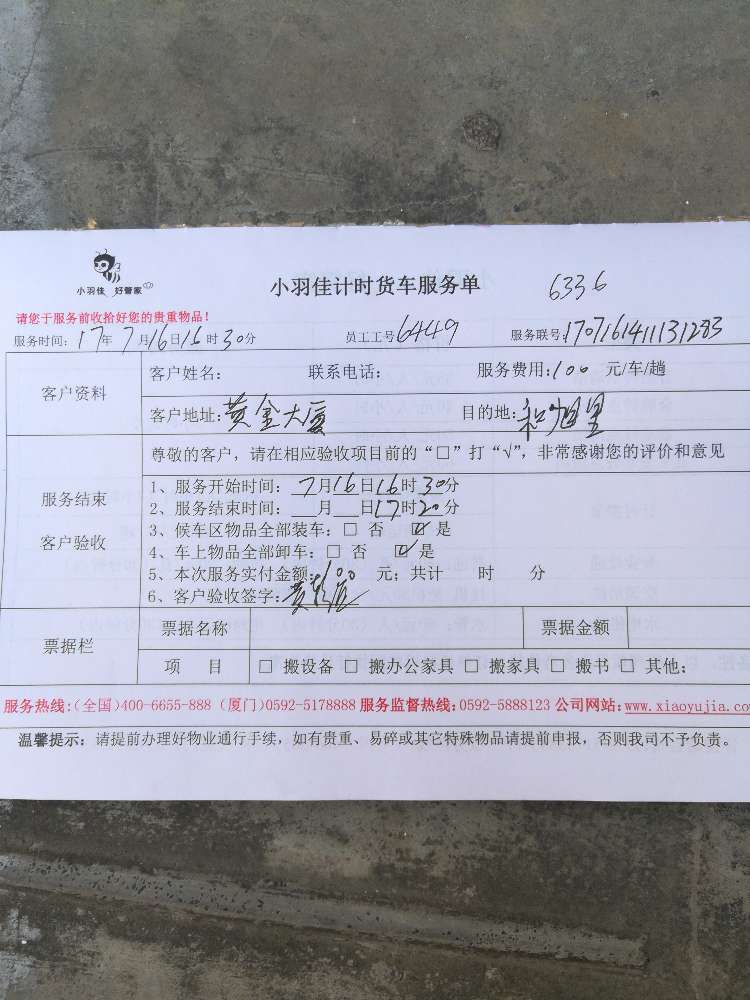 小羽佳 好管家
小羽佳计时货车服务单 6336
请您于服务前收拾好您的贵重物品！
服务时间：17年7月16日16时30分 员工工号6449 服务联号：1707161411131283
客户资料
客户姓名： 联系电话： 服务费用：100 元/车/趟
客户地址：黄金大厦 目的地：和旭里
服务结束
客户验收
尊敬的客户，请在相应验收项目前的“□”打“√”，非常感谢您的评价和意见
1、服务开始时间：7月16日16时30分
2、服务结束时间：__月__日17时20分
3、候车区物品全部装车：□ 否 ☑ 是
4、车上物品全部卸车：□ 否 ☑ 是
5、本次服务实付金额：100 元；共计 时 分
6、客户验收签字：
票据栏
票据名称 票据金额
项 目 □ 搬设备 □ 搬办公家具 □ 搬家具 □ 搬书 □ 其他：
服务热线：(全国)400-6655-888 (厦门)0592-5178888 服务监督热线：0592-5888123 公司网站：www.xiaoyujia.co
温馨提示：请提前办理好物业通行手续，如有贵重、易碎或其它特殊物品请提前申报，否则我司不予负责。